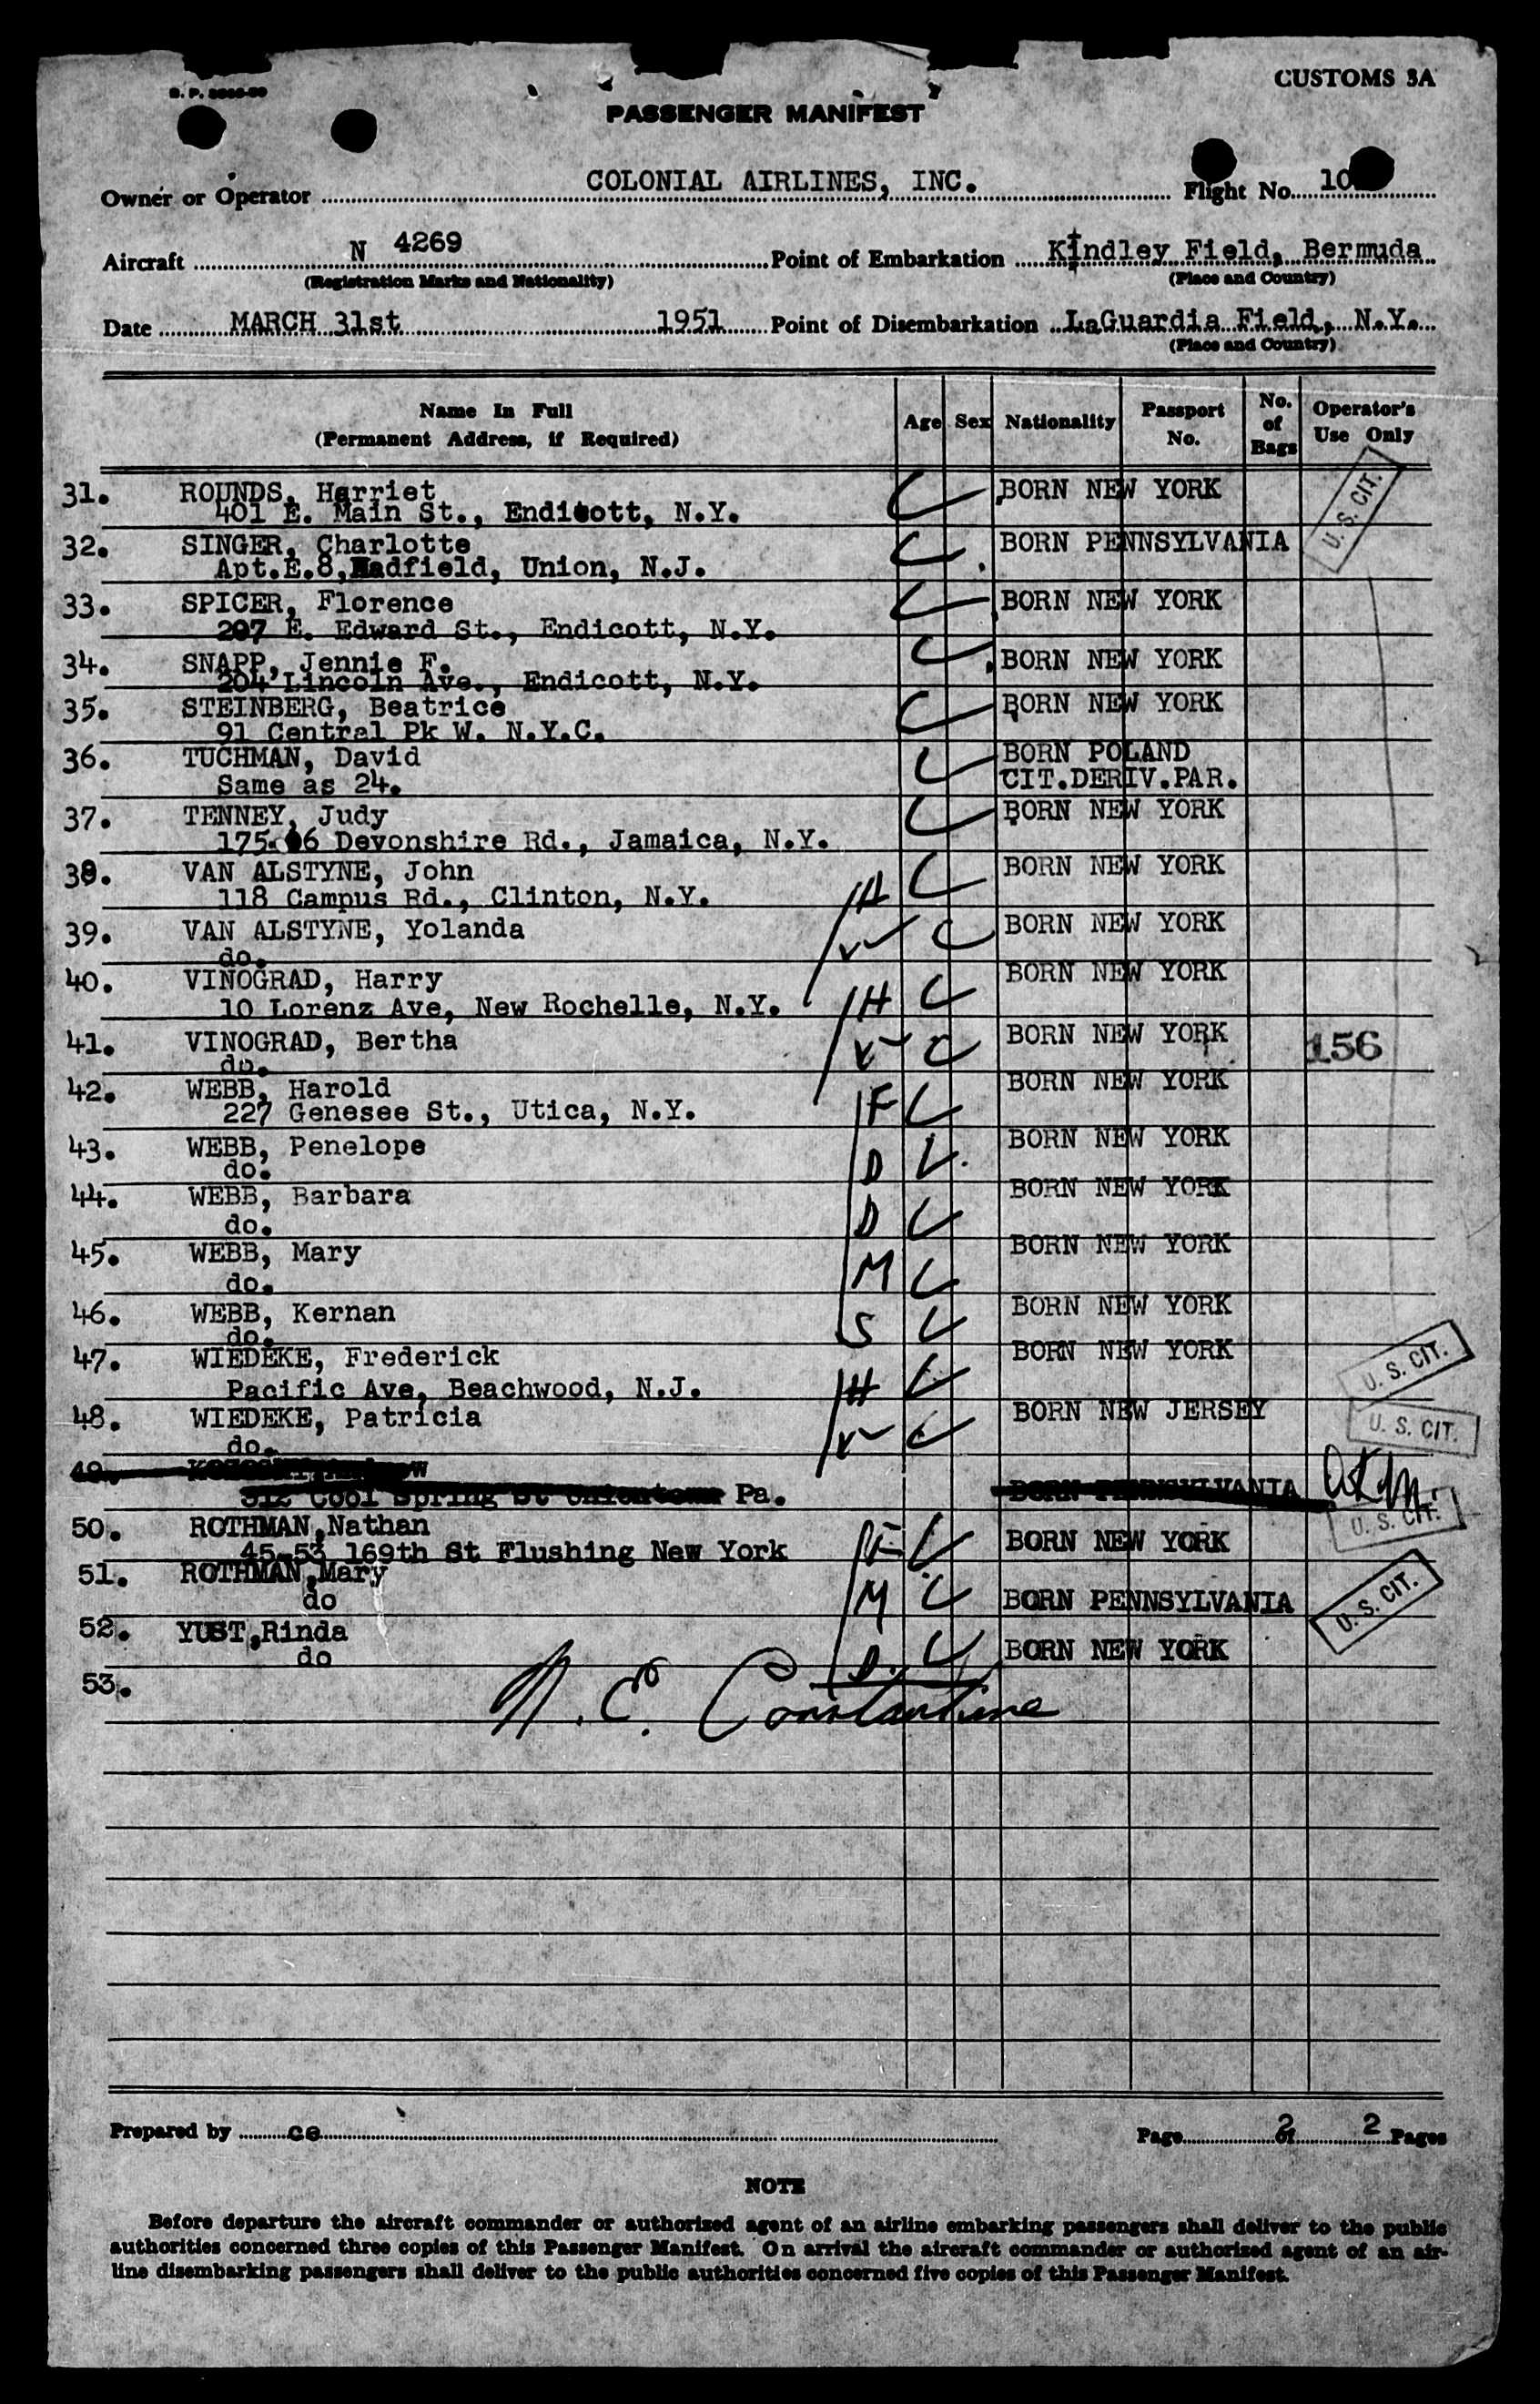 CUSTOMS 3A
PASSENGER MANIFEST
Owner or Operator COLONIAL AIRLINES, INC. Flight No. 10
Aircraft N 4269 Point of Embarkation Kindley Field, Bermuda
(Registration Marks and Nationality) (Place and Country)
Date MARCH 31st 1951 Point of Disembarkation LaGuardia Field, N.Y.
(Place and Country)
Name In Full (Permanent Address, if Required) Age Sex Nationality Passport No. No. of Bags Operator's Use Only
31. ROUNDS, Harriet BORN NEW YORK
401 E. Main St., Endicott, N.Y.
U. S. CIT.
32. SINGER, Charlotte BORN PENNSYLVANIA
Apt.E.8, Hadfield, Union, N.J.
33. SPICER, Florence BORN NEW YORK
207 E. Edward St., Endicott, N.Y.
34. SNAPP, Jennie F. BORN NEW YORK
204 Lincoln Ave., Endicott, N.Y.
35. STEINBERG, Beatrice BORN NEW YORK
91 Central Pk W. N.Y.C.
36. TUCHMAN, David BORN POLAND
Same as 24. CIT.DERIV.PAR.
37. TENNEY, Judy BORN NEW YORK
Devonshire Rd., Jamaica, N.Y.
38. VAN ALSTYNE, John H BORN NEW YORK
118 Campus Rd., Clinton, N.Y.
39. VAN ALSTYNE, Yolanda BORN NEW YORK
do.
40. VINOGRAD, Harry H BORN NEW YORK
10 Lorenz Ave, New Rochelle, N.Y.
41. VINOGRAD, Bertha BORN NEW YORK 156
do.
42. WEBB, Harold F BORN NEW YORK
227 Genesee St., Utica, N.Y.
43. WEBB, Penelope D BORN NEW YORK
do.
44. WEBB, Barbara D BORN NEW YORK
do.
45. WEBB, Mary M BORN NEW YORK
do.
46. WEBB, Kernan S BORN NEW YORK
do.
47. WIEDEKE, Frederick H BORN NEW YORK U. S. CIT.
Pacific Ave, Beachwood, N.J.
48. WIEDEKE, Patricia BORN NEW JERSEY U. S. CIT.
do.
49. BORN PENNSYLVANIA
312 Cool Spring St Uniontown Pa.
50. ROTHMAN,Nathan F BORN NEW YORK U. S. CIT.
45-53 169th St Flushing New York
51. ROTHMAN,Mary M BORN PENNSYLVANIA U. S. CIT.
do
52. YUST,Rinda D. BORN NEW YORK
do
53. N. E. Constantine
Prepared by ce Page 2 of 2 Pages
NOTE
Before departure the aircraft commander or authorized agent of an airline embarking passengers shall deliver to the public
authorities concerned three copies of this Passenger Manifest. On arrival the aircraft commander or authorized agent of an air-
line disembarking passengers shall deliver to the public authorities concerned five copies of this Passenger Manifest.